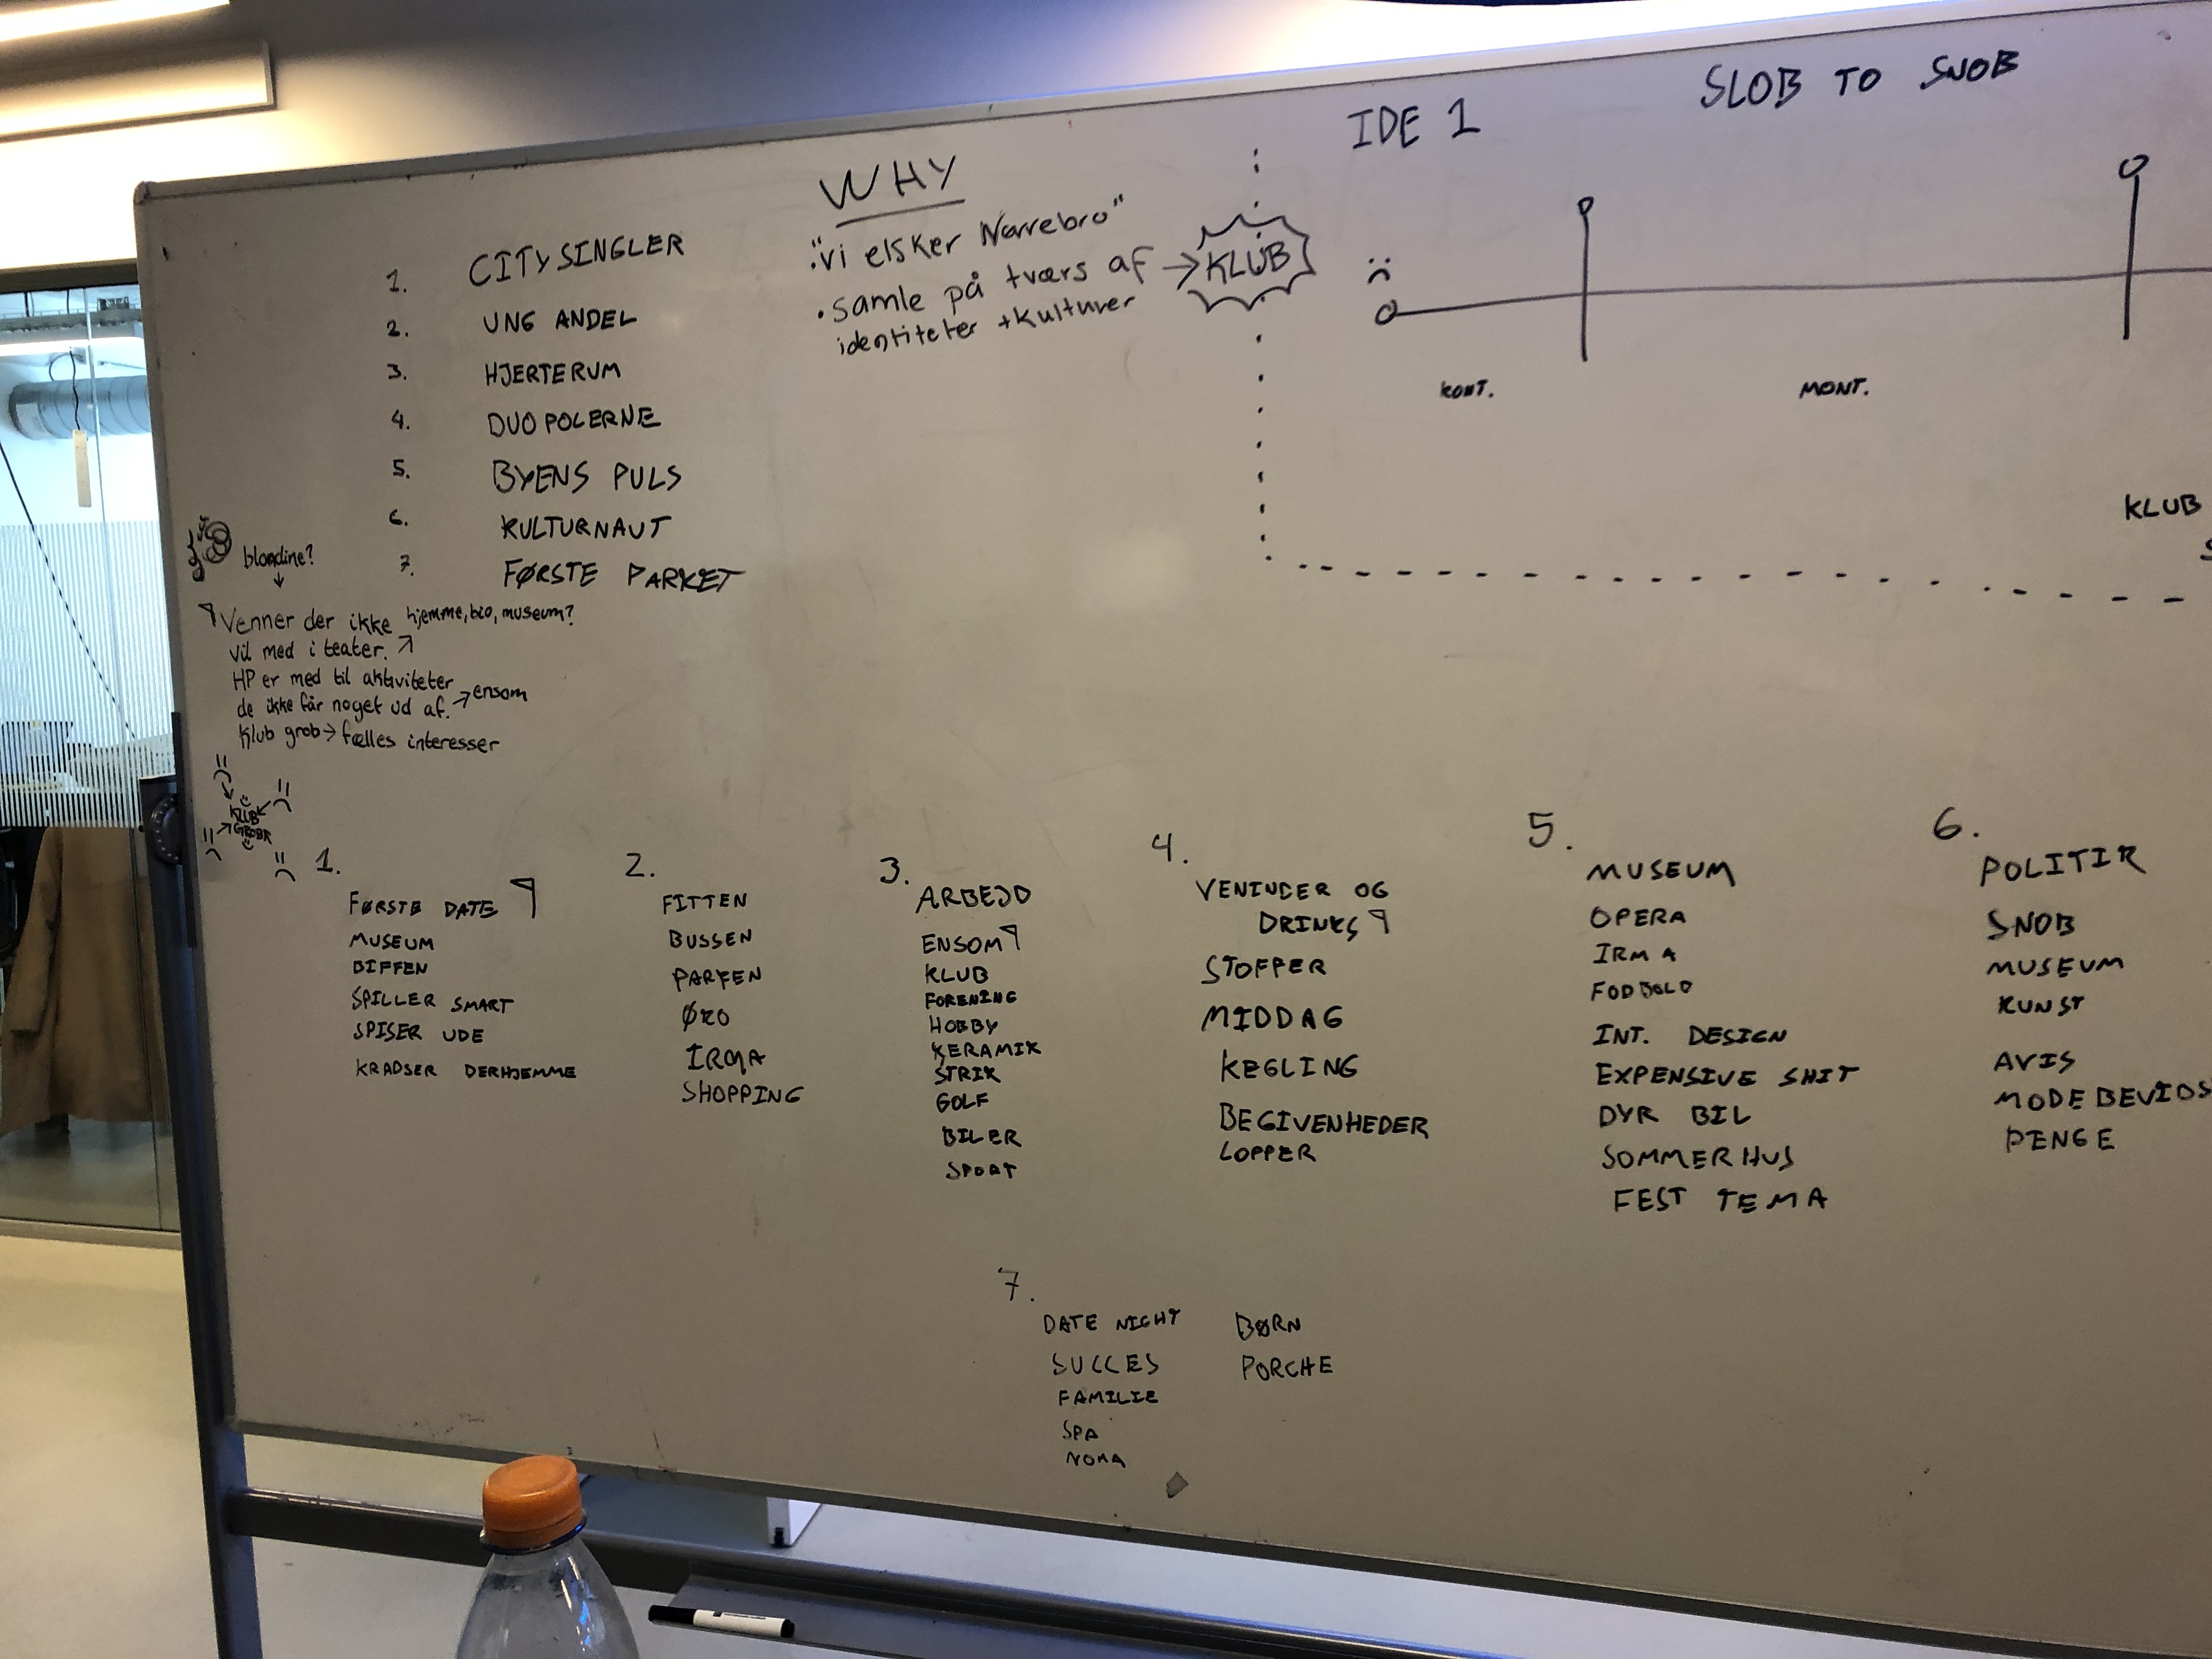 IDE 1
SLOB TO SNOB
WHY
"Vi elsker Nørrebro"
• Samle på tværs af → KLUB
identiteter + kulturer
1. CITY SINGLER
2. UNG ANDEL
3. HJERTERUM
4. DUOPOLERNE
5. BYENS PULS
6. KULTURNAUT
7. FØRSTE PARKET
KONT.
MONT.
KLUB
blondine?
Venner der ikke
vil med i teater. ↗ hjemme, bio, museum?
HP er med til aktiviteter
de ikke får noget ud af. → ensom
Klub grob → fælles interesser
KLUB
GROB
1.
FØRSTE DATE
MUSEUM
BIFFEN
SPILLER SMART
SPISER UDE
KRADSER DERHJEMME
2.
FITTEN
BUSSEN
PARKEN
ØRO
IRMA
SHOPPING
3.
ARBEJD
ENSOM
KLUB
FORENING
HOBBY
KERAMIK
STRIK
GOLF
BILER
SPORT
4.
VENINDER OG
DRINKS
STOFFER
MIDDAG
KEGLING
BEGIVENHEDER
LOPPER
5.
MUSEUM
OPERA
IRMA
FODBOLD
INT. DESIGN
EXPENSIVE SHIT
DYR BIL
SOMMERHUS
FEST TEMA
6.
POLITIK
SNOB
MUSEUM
KUNST
AVIS
MODEBEVIDS
PENGE
7.
DATE NIGHT
SUCCES
FAMILIE
SPA
NOMA
BØRN
PORCHE